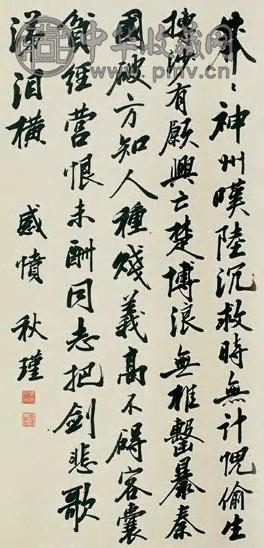 莽々神州嘆陸沉救時無計愧偷生
摶沙有願興亡楚博浪無椎擊暴秦
國破方知人種賤義高不碍客囊
貧經營恨未酬同志把劍悲歌
涕泪橫 感憤 秋瑾
中华收藏网